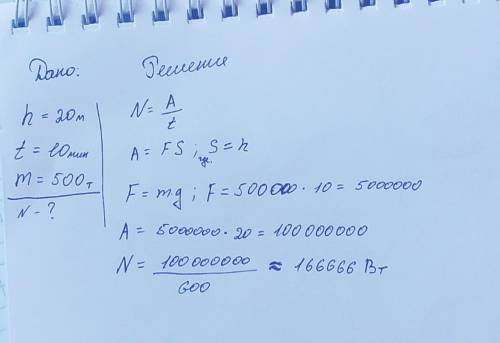 Дано: Решение
h = 20м
t = 10мин
m = 500т
N - ?
N = A/t
A = FS ; где S = h
F = mg ; F = 500000 · 10 = 5000000
A = 5000000 · 20 = 100000000
N = 100000000/600 ≈ 166666 Вт